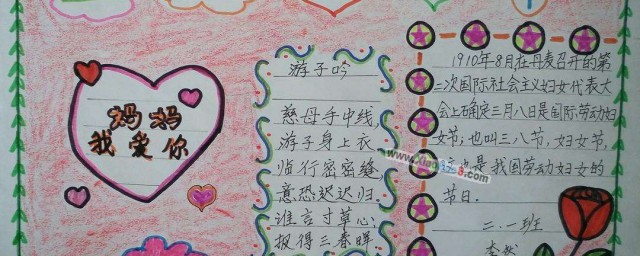 妈妈
我爱你
游子吟
慈母手中线,
游子身上衣
临行密密缝
意恐迟迟归.
谁言寸草心
报得三春晖
1910年8月在丹麦召开的第
二次国际社会主义妇女代表大
会上确定三月八日是国际劳动妇
女节;也叫三八节,妇女节,
也是我国劳动妇女的
节日.
二.一班